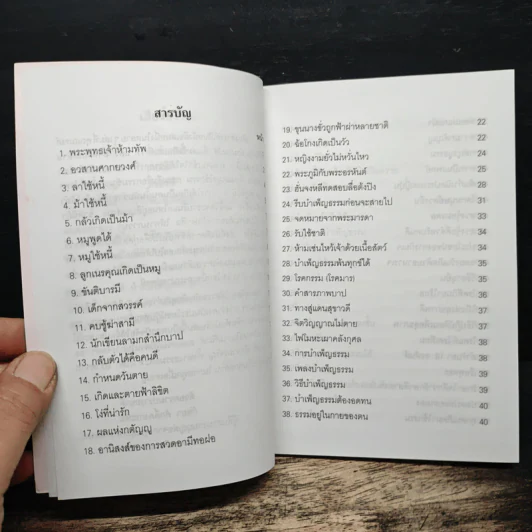 สารบัญ
1. พระพุทธเจ้าห้ามทัพ
2. อวสานศากยวงศ์
3. ลาใช้หนี้
4. ม้าใช้หนี้
5. กลัวเกิดเป็นม้า
6. หมูพูดได้
7. หมูใช้หนี้
8. ลูกเนรคุณเกิดเป็นหมู
9. ขันติบารมี
10. เด็กจากสวรรค์
11. คบชู้ฆ่าสามี
12. นักเขียนลามกสำนึกบาป
13. กลับตัวได้คือคนดี
14. กำหนดวันตาย
15. เกิดและตายฟ้าลิขิต
16. โง่ที่น่ารัก
17. ผลแห่งกตัญญู
18. อานิสงส์ของการสวดอามีทอฝอ
19. ขุนนางชั่วถูกฟ้าผ่าหลายชาติ 22
20. ฉ้อโกงเกิดเป็นวัว 22
21. หญิงงามยั่วไม่หวั่นไหว 23
22. พระภูมิกับพระอรหันต์ 24
23. ฮั่นจงหลีทดสอบลื่อต้งปิง 28
24. รีบบำเพ็ญธรรมก่อนจะสายไป 31
25. จดหมายจากพระมารดา 31
26. รับใช้ชาติ 34
27. ห้ามเซ่นไหว้เจ้าด้วยเนื้อสัตว์ 34
28. บำเพ็ญธรรมพ้นทุกข์ได้ 34
29. โรคกรรม (โรคมาร) 35
30. คำสารภาพบาป 36
31. ทางสู่แดนสุขาวดี 37
32. จิตวิญญาณไม่ตาย 38
33. ไฟโมหะเผาคลังกุศล 38
34. การบำเพ็ญธรรม 38
35. เพลงบำเพ็ญธรรม 39
36. วิธีบำเพ็ญธรรม 39
37. บำเพ็ญธรรมต้องอดทน 40
38. ธรรมอยู่ในกายของตน 40